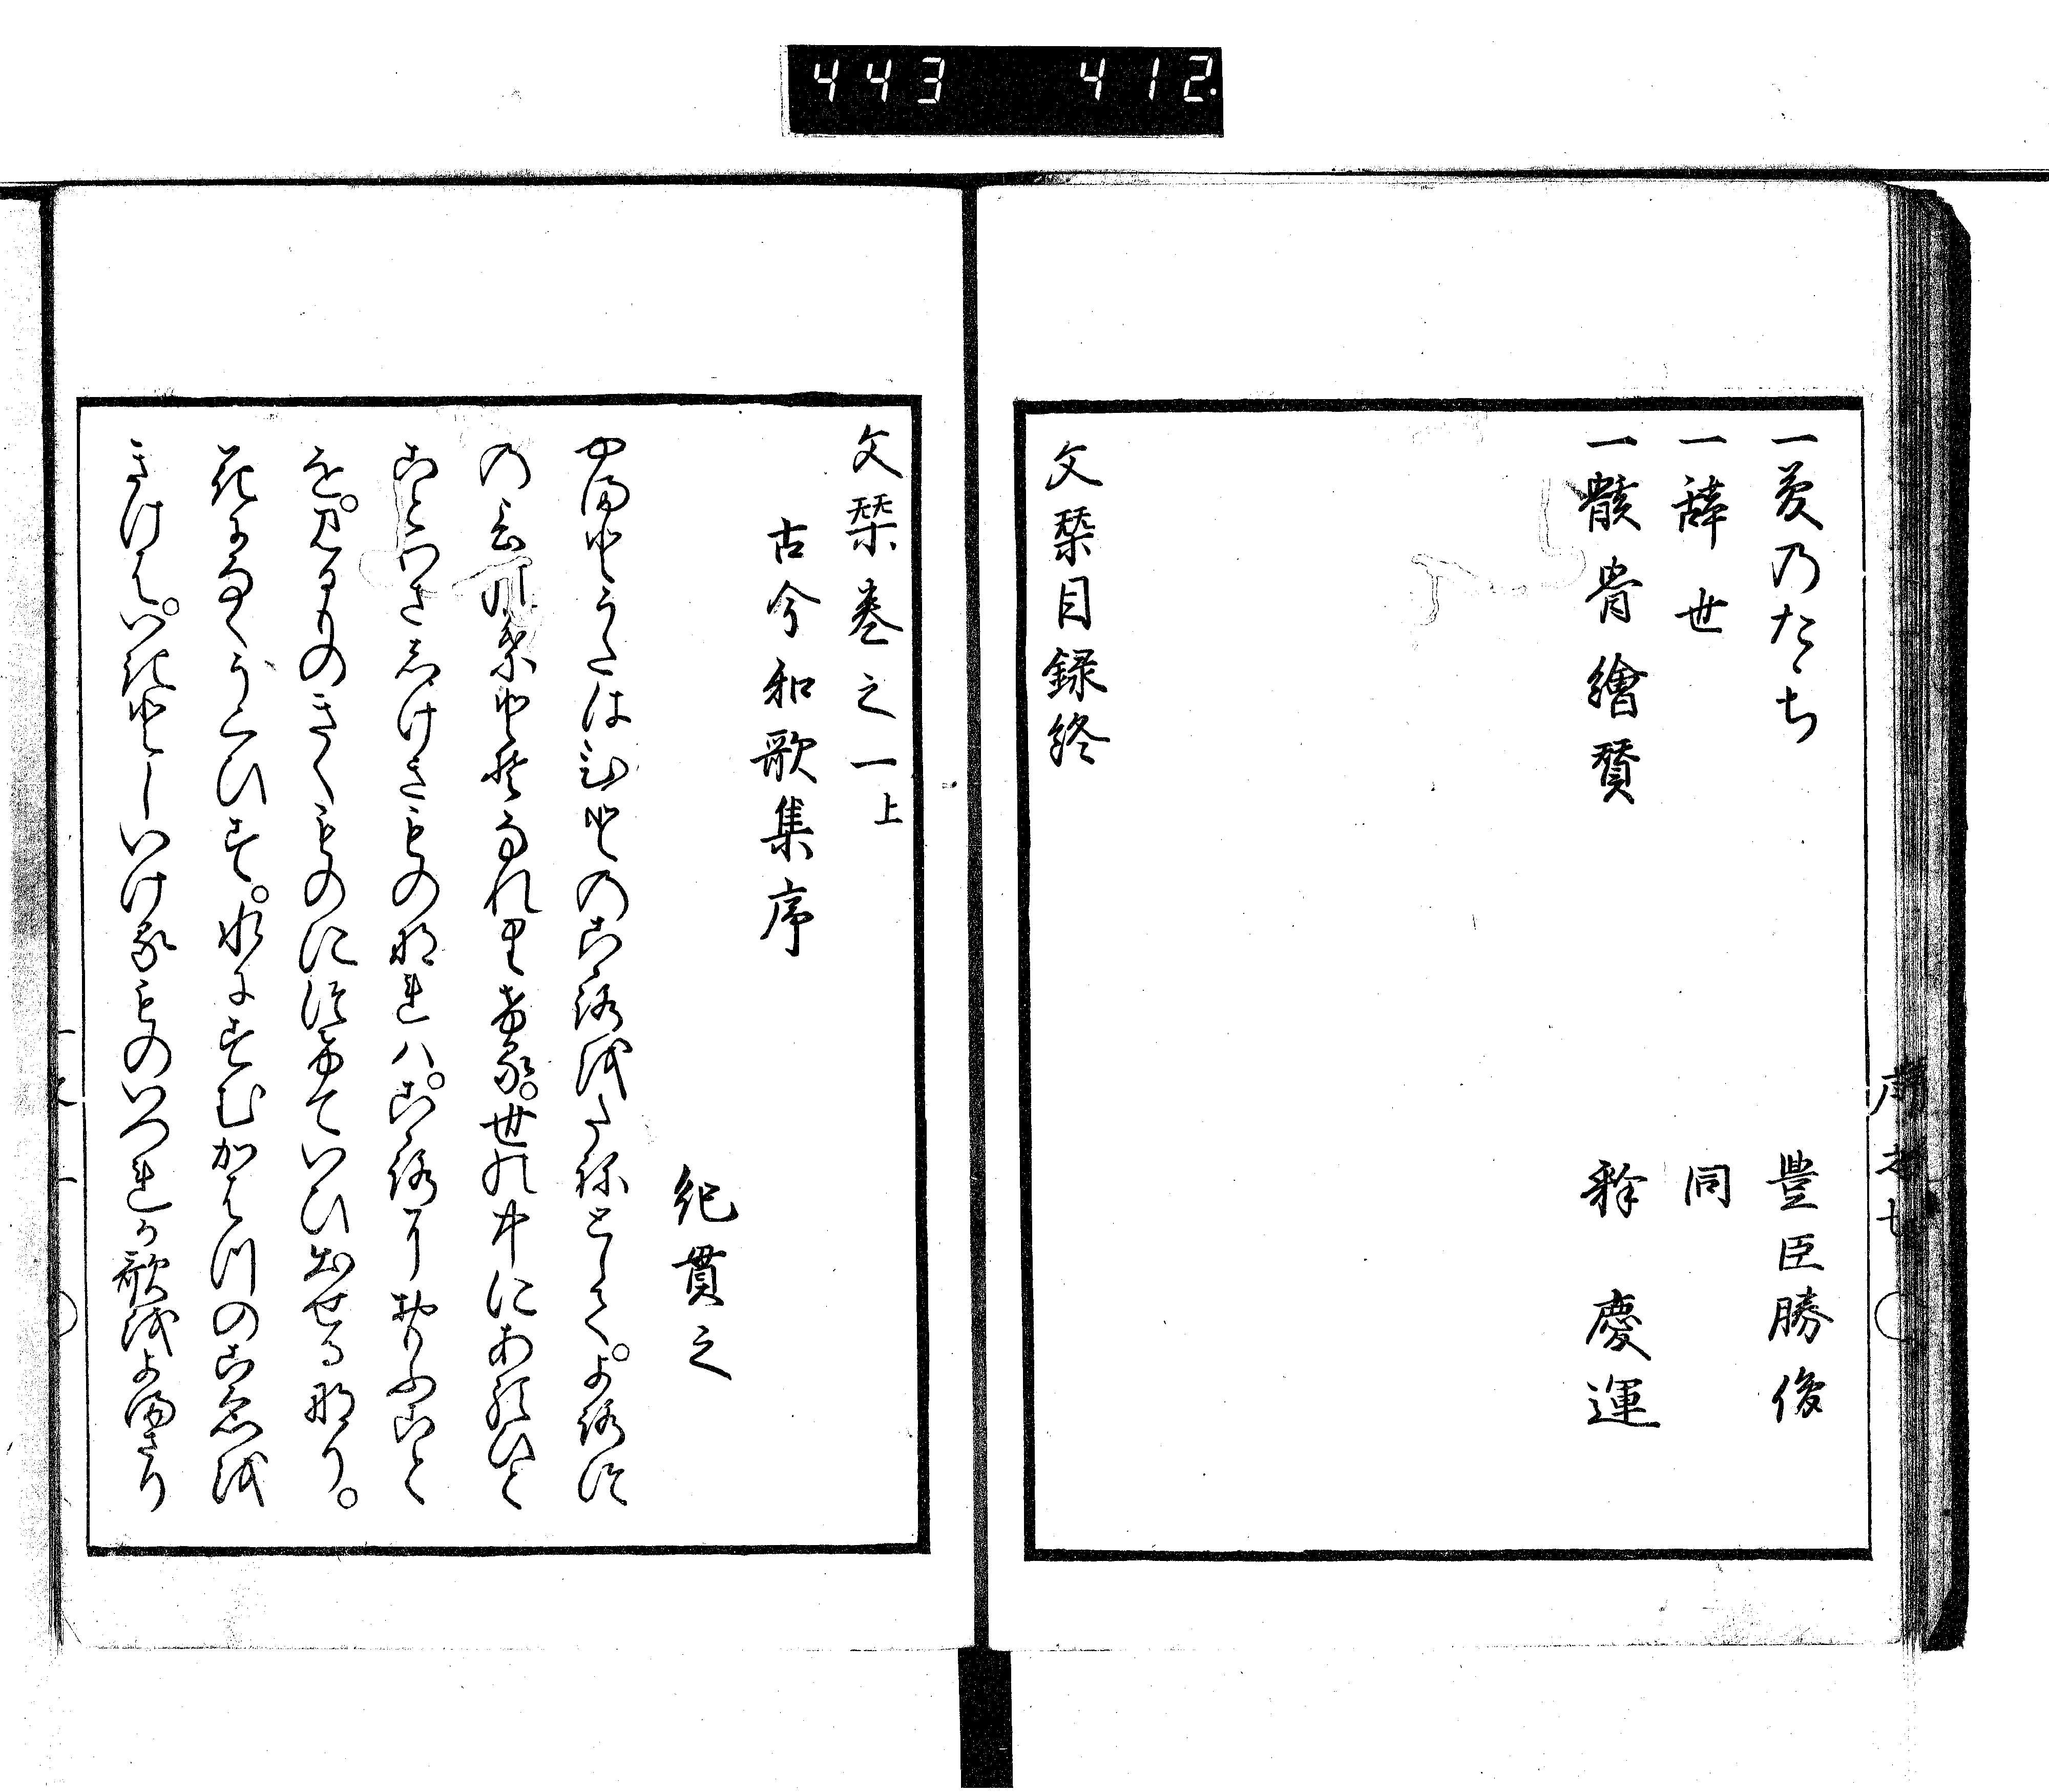 443 412
一茨乃たゝち 豊臣勝俊
一辞世 同
一骸骨繪賛 釋慶運
文栞目録終
文栞巻之一上
古今和歌集序
紀貫之
やまとうたはひとのこゝろをたねとして。よろつ
の言の葉とそなれりける。世の中にあるひと
ことわさしけきものなれハ。こゝろにおもふこと
を。見るものきくものにつけていひ出せるなり。
花になくうくひす。水にすむかはつのこゑを
きけは。いきとしいけるものいつれか歌をよまさり